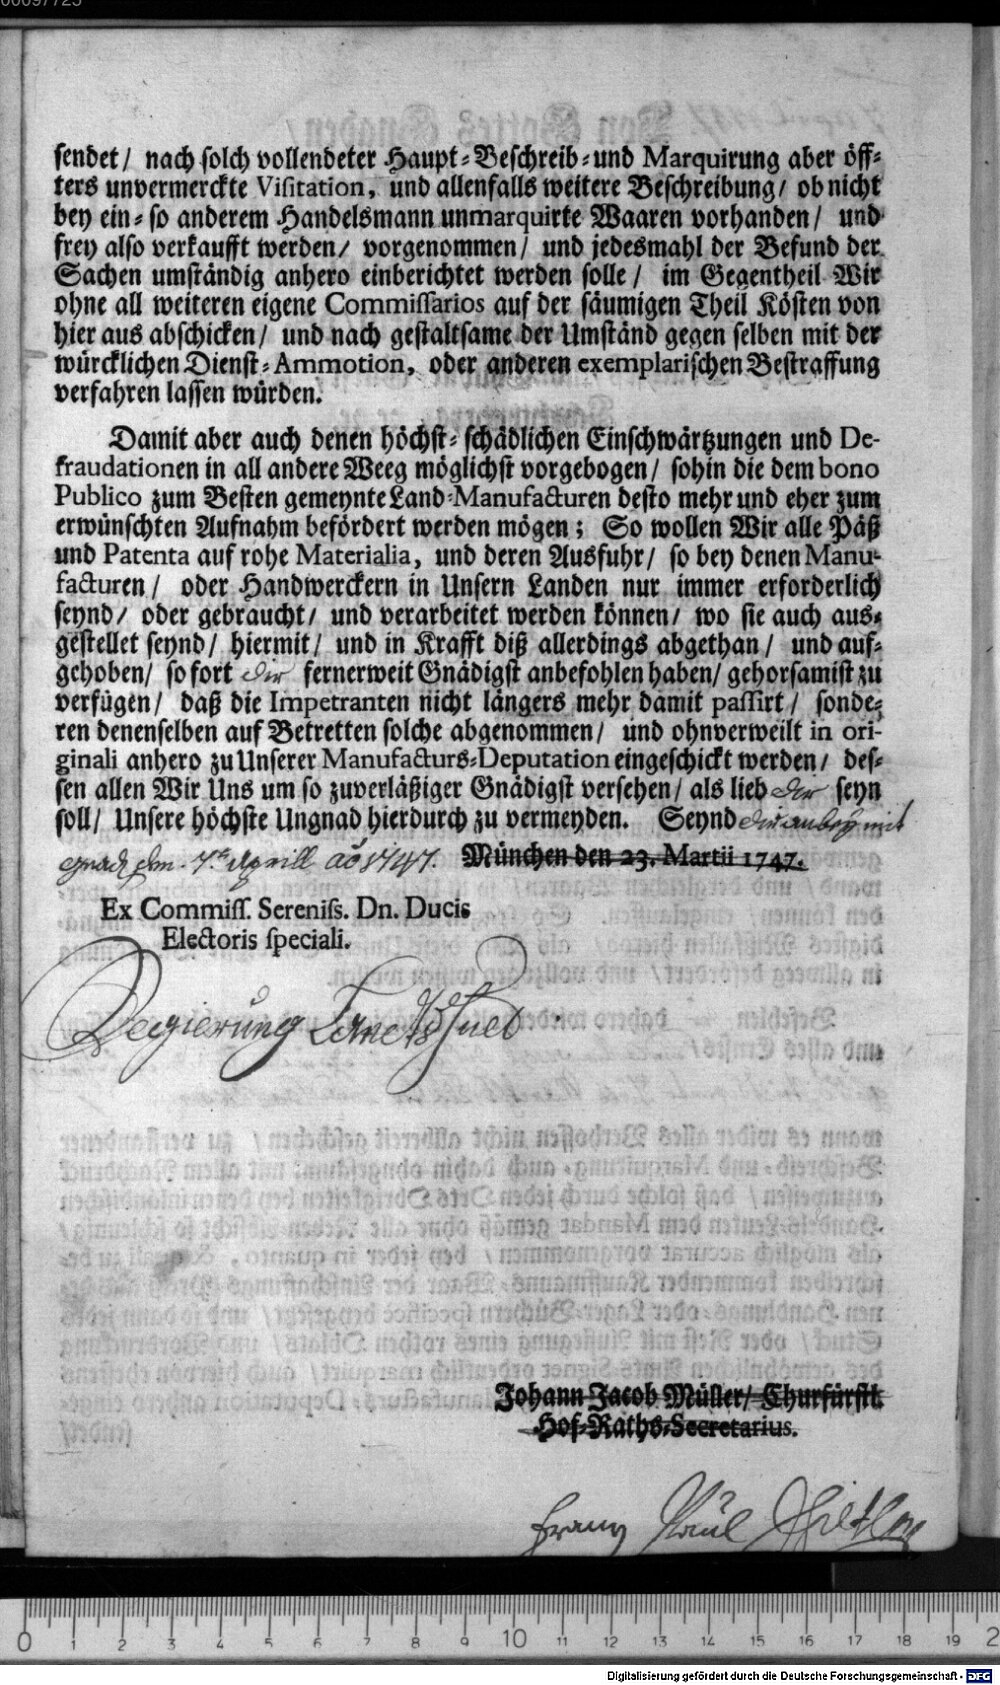 sendet/ nach solch vollendeter Haupt-Beschreib-und Marquirung aber öff-
ters unvermerckte Visitation, und allenfalls weitere Beschreibung/ ob nicht
bey ein-so anderem Handelsmann unmarquirte Waaren vorhanden/ und
frey also verkaufft werden/ vorgenommen/ und jedesmahl der Befund der
Sachen umständig anhero einberichtet werden solle/ im Gegentheil Wir
ohne all weiteren eigene Commissarios auf der säumigen Theil Kösten von
hier aus abschicken/ und nach gestaltsame der Umständ gegen selben mit der
würcklichen Dienst-Ammotion, oder anderen exemplarischen Bestraffung
verfahren lassen würden.
Damit aber auch denen höchst-schädlichen Einschwärtzungen und De-
fraudationen in all andere Weeg möglichst vorgebogen/ sohin die dem bono
Publico zum Besten gemeynte Land-Manufacturen desto mehr und eher zum
erwünschten Aufnahm befördert werden mögen; So wollen Wir alle Päß
und Patenta auf rohe Materialia, und deren Ausfuhr/ so bey denen Manu-
facturen/ oder Handwerckern in Unsern Landen nur immer erforderlich
seynd/ oder gebraucht/ und verarbeitet werden können/ wo sie auch aus-
gestellet seynd/ hiermit/ und in Krafft diß allerdings abgethan/ und auf-
gehoben/ so fort dir fernerweit Gnädigst anbefohlen haben/ gehorsamist zu
verfügen/ daß die Impetranten nicht längers mehr damit passirt/ sonde-
ren denenselben auf Betretten solche abgenommen/ und ohnverweilt in ori-
ginali anhero zu Unserer Manufacturs-Deputation eingeschickt werden/ des-
sen allen Wir Uns um so zuverläßiger Gnädigst versehen/ als lieb dir seyn
soll/ Unsere höchste Ungnad hierdurch zu vermeyden. Seynd dir anbey mit
gnaden. 7te Aprill ao 1747. München den 23. Martii 1747.
Ex Commiss. Sereniss. Dn. Ducis
Electoris speciali.
Regierung Landtshuet
Johann Jacob Müller/ Churfürstl.
Hof-Raths-Secretarius.
Franz Paul
0 1 2 3 4 5 6 7 8 9 10 11 12 13 14 15 16 17 18 19 2
Digitalisierung gefördert durch die Deutsche Forschungsgemeinschaft - DFG